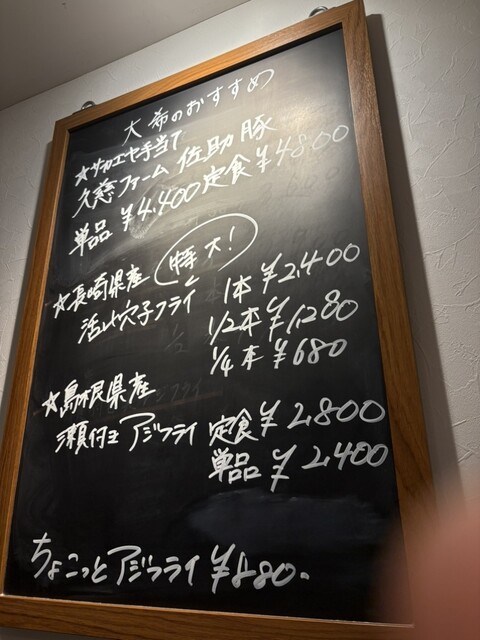 大希のおすすめ
☆サカエヤ手当て
久慈ファーム 佐助豚
単品 ¥4,400 定食¥4800
☆長崎県産 特大!
活〆穴子フライ 1本 ¥2,400
1/2本 ¥1280
1/4本 ¥680
☆島根県産
瀬付き アジフライ 定食¥2,800
単品 ¥2,400
ちょこっとアジフライ ¥880.